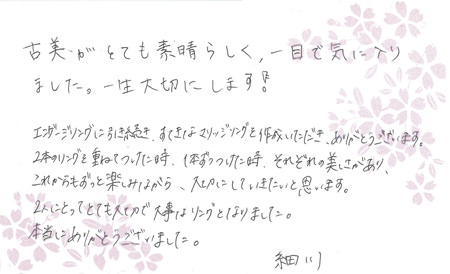 古美がとても素晴らしく、一目で気に入り
ました。一生大切にします!
エンゲージリングに引き続き、すてきなマリッジリングを作成いただき、ありがとうございます。
2本のリングを重ねてつけた時、1本ずつつけた時、それぞれの美しさがあり、
これからもずっと楽しみながら、大切にしていきたいと思います。
2人にとってとても大切で大事なリングとなりました。
本当にありがとうございました。
細川